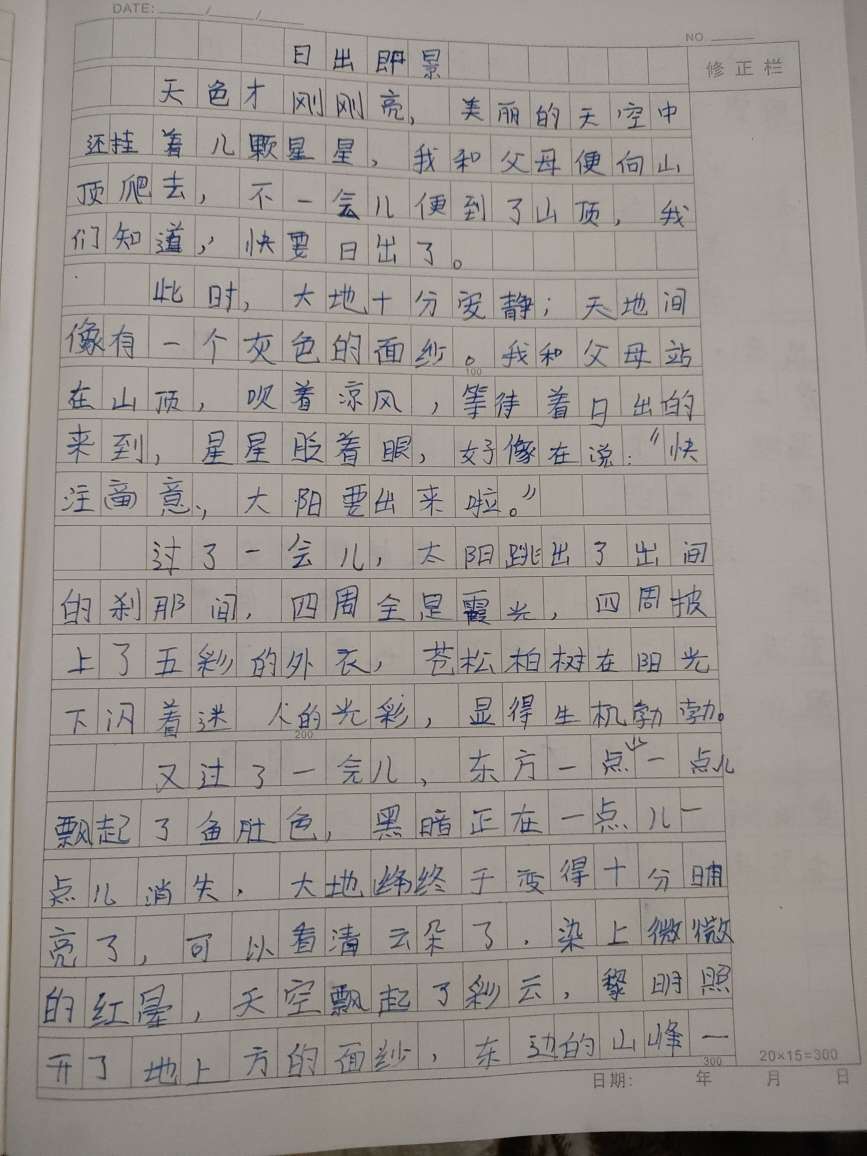 DATE: / /
NO
日出即景
修正栏
天色才刚刚亮，美丽的天空中
还挂着儿颗星星，我和父母便向山
顶爬去，不一会儿便到了山顶，我
们知道，快要日出了。
此时，大地十分安静；天地间
像有一个灰色的面纱。我和父母站
100
在山顶，吹着凉风，等待着日出的
来到，星星眨着眼，好像在说："快
注意，太阳要出来啦。"
过了一会儿，太阳跳出了出间
的刹那间，四周全是霞光，四周披
上了五彩的外衣，苍松柏树在阳光
下闪着迷人的光彩，显得生机勃勃。
200
又过了一会儿，东方一点一点儿
飘起了鱼肚色，黑暗正在一点儿一
点儿消失，大地终于变得十分
亮了，可以看清云朵了，染上微微
的红晕，天空飘起了彩云，黎明照
开了地上方的面纱，东边的山峰一
300
20×15=300
日期： 年 月 日